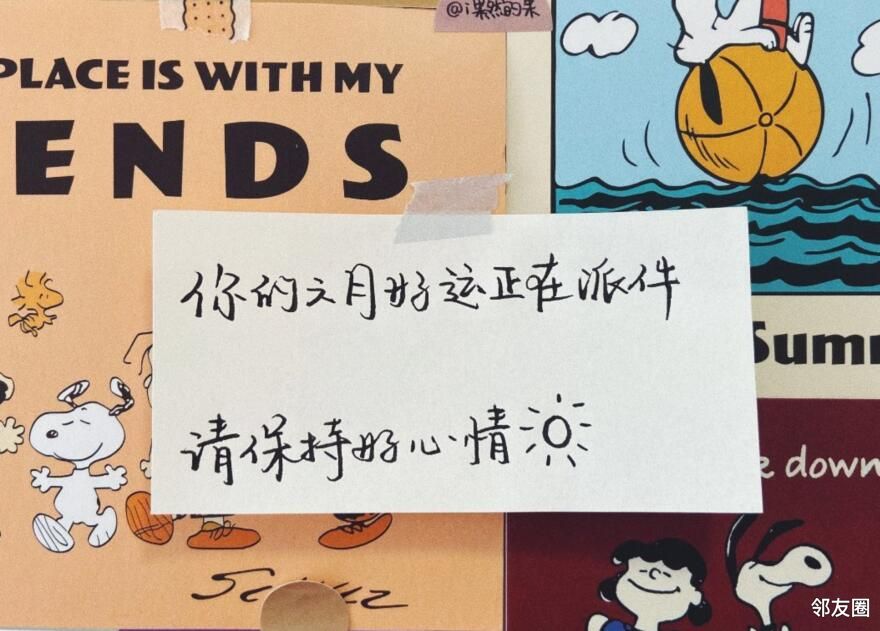 @i果然的呆
PLACE IS WITH MY
ENDS
你的六月好运正在派件
请保持好心情
Summ
down
邻友圈